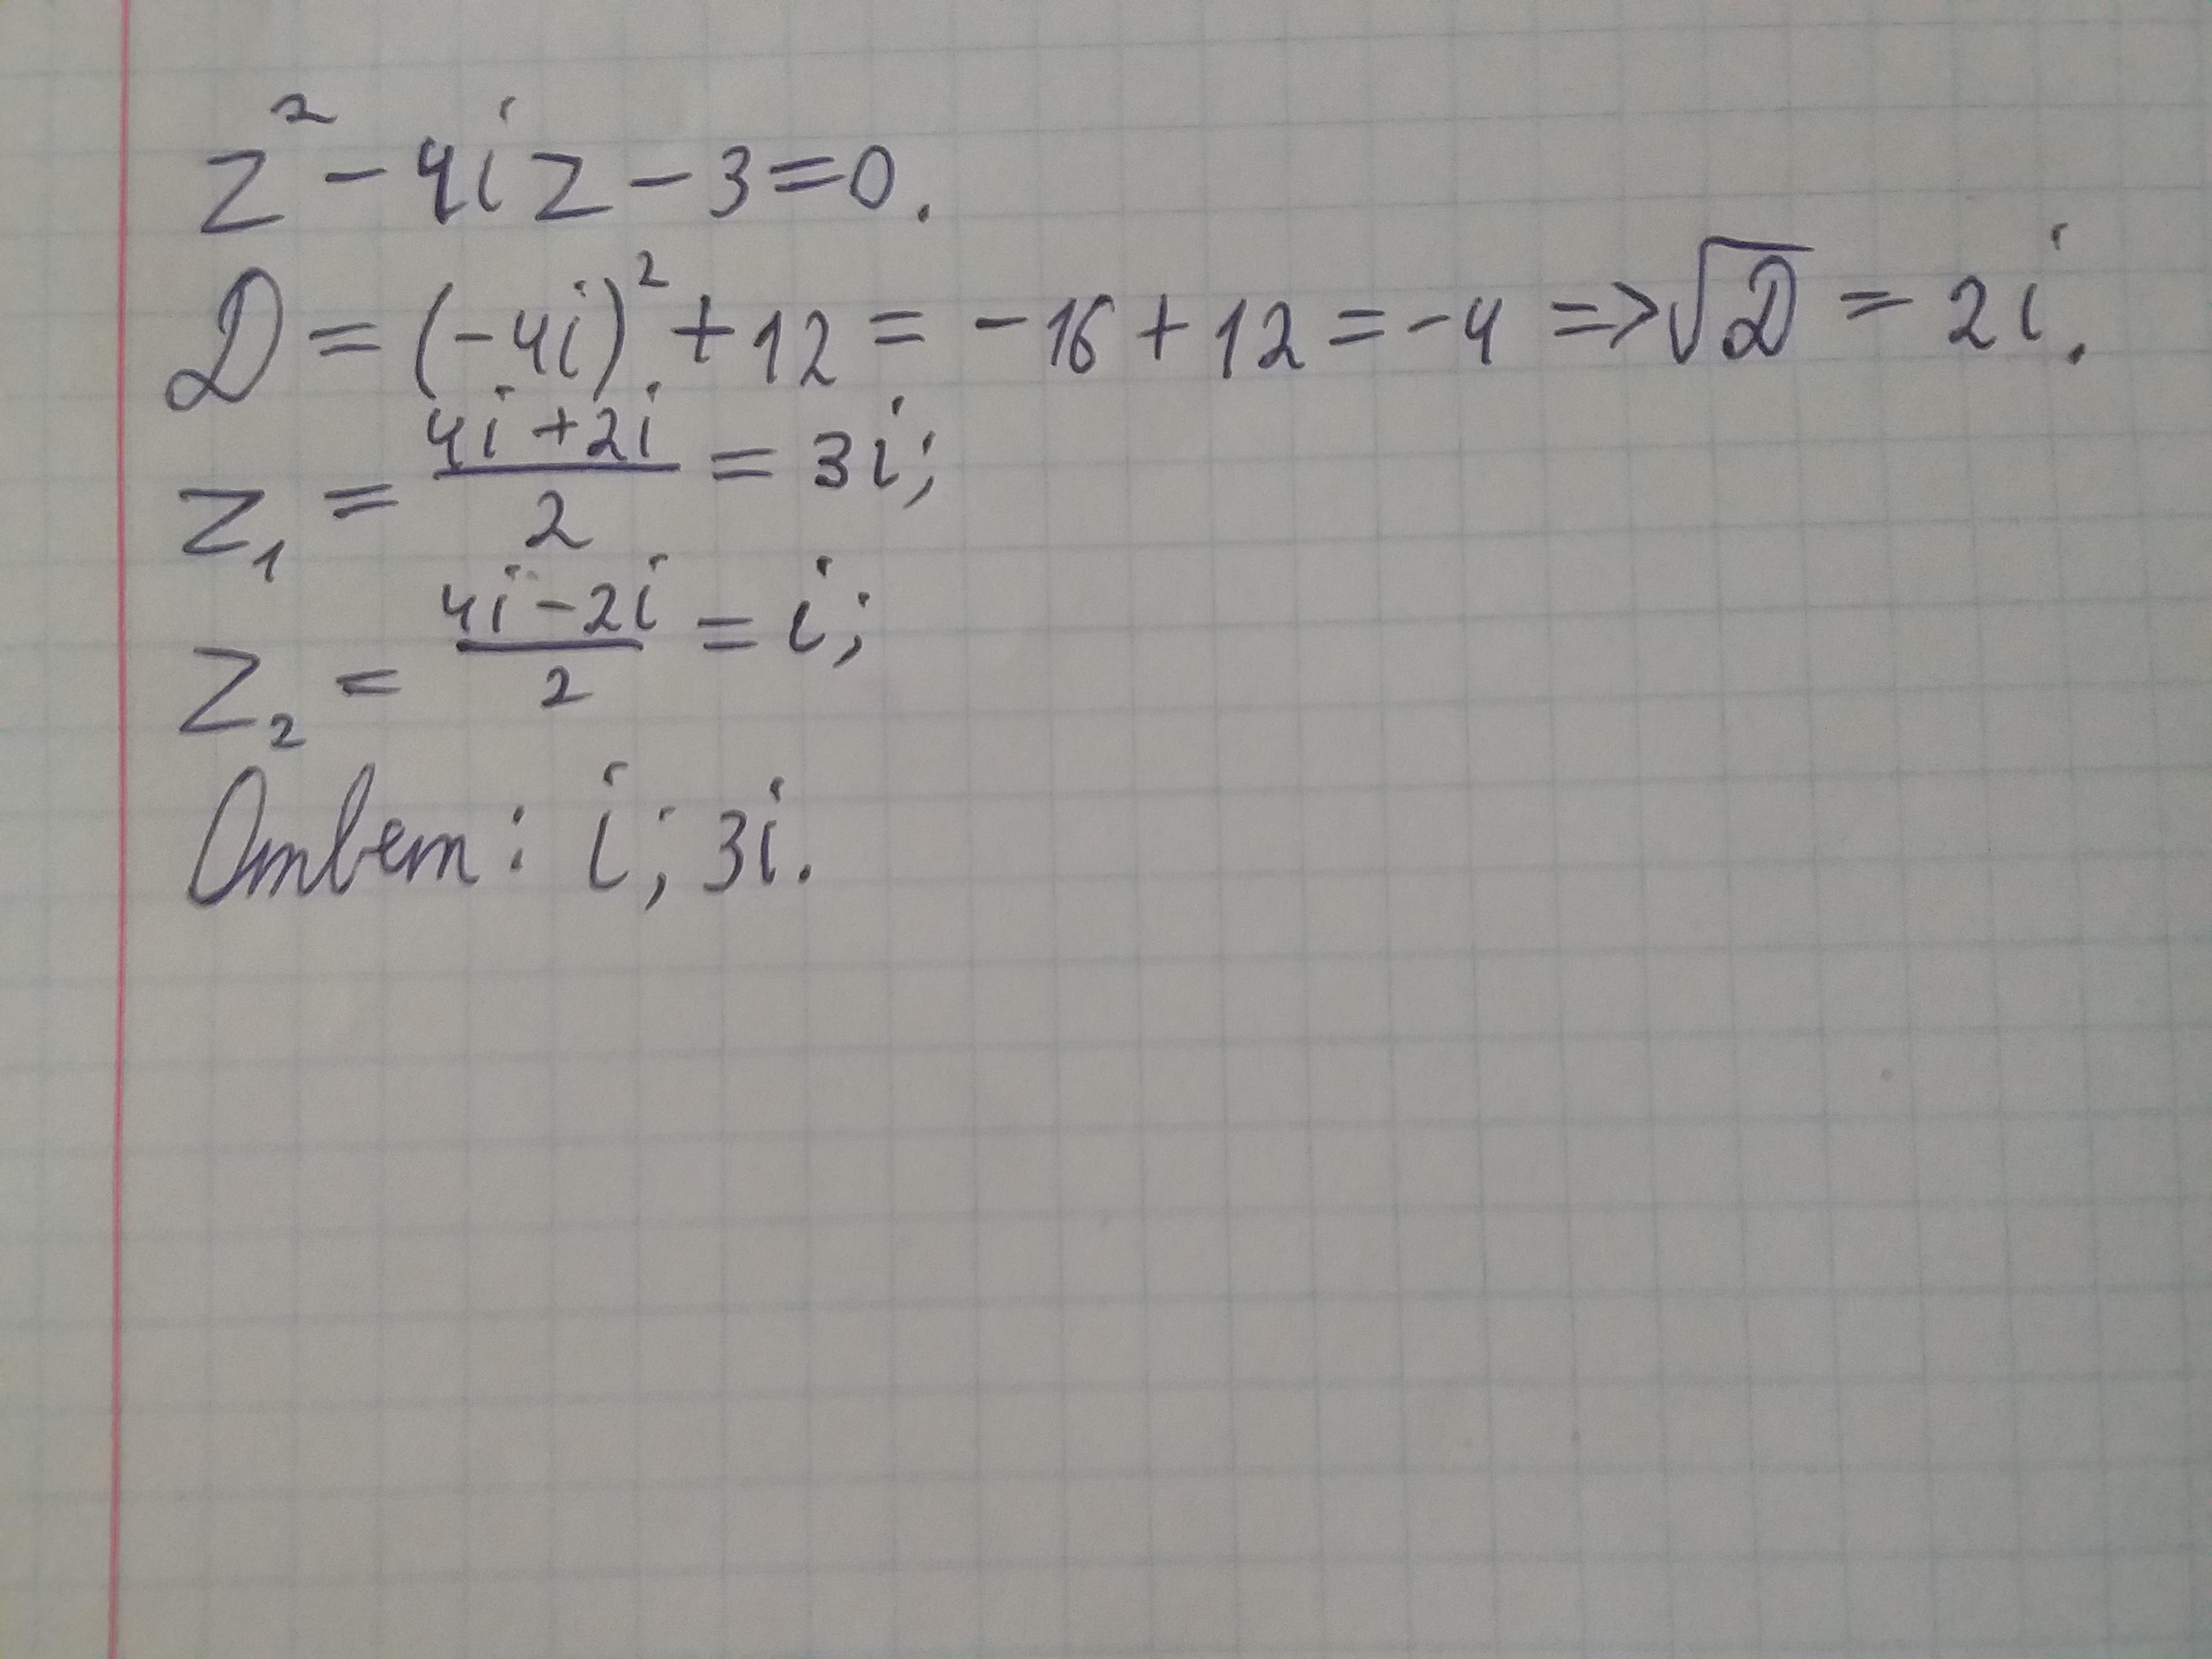 z² - 4iz - 3 = 0.
D = (-4i)² + 12 = -16 + 12 = -4 => √D = 2i.
z₁ = (4i + 2i)/2 = 3i;
z₂ = (4i - 2i)/2 = i;
Ответ: i; 3i.